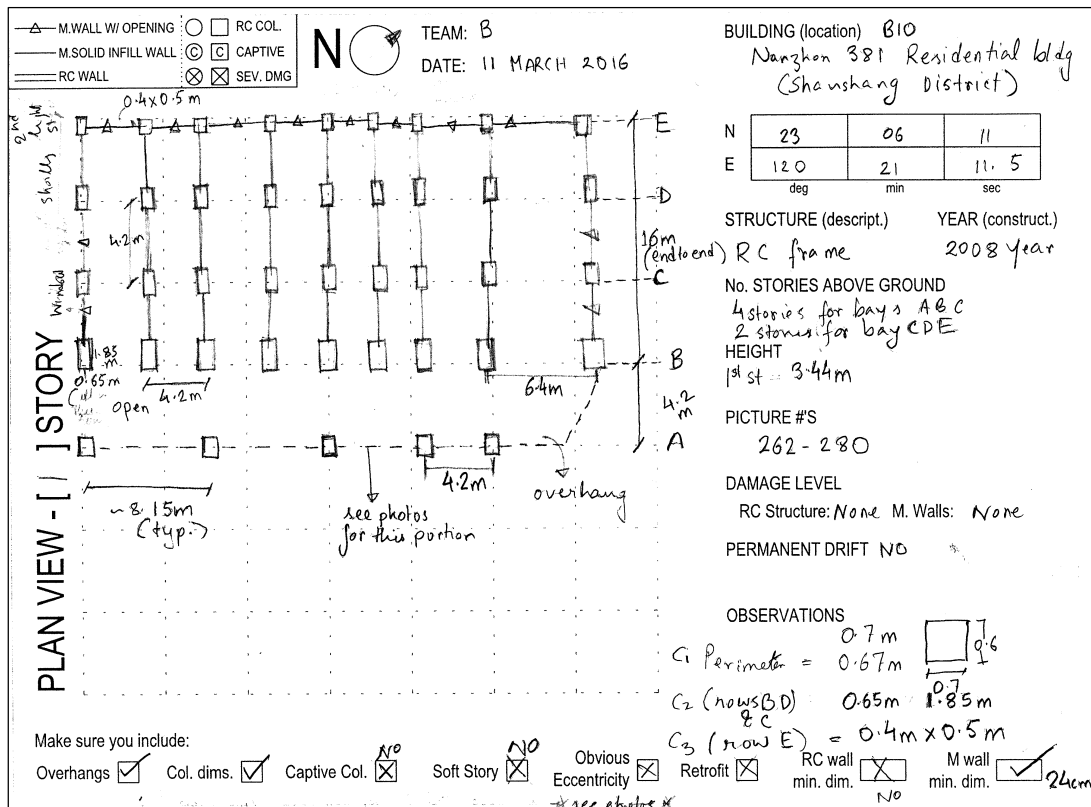 M.WALL W/ OPENING
M.SOLID INFILL WALL
RC WALL
RC COL.
C C CAPTIVE
SEV. DMG
N
TEAM: B
DATE: 11 MARCH 2016
BUILDING (location) B10
Nanzhon 381 Residential bldg
(Shanshang District)
N 23 06 11
E 120 21 11.5
deg min sec
STRUCTURE (descript.)
RC frame
YEAR (construct.)
2008 Year
No. STORIES ABOVE GROUND
4 stories for bays ABC
2 stories for bay CDE
HEIGHT
1st st 3.44m
PICTURE #'S
262-280
DAMAGE LEVEL
RC Structure: None M. Walls: None
PERMANENT DRIFT NO
OBSERVATIONS
C1 Perimeter = 0.7m
0.67m
0.6
0.7
C2 (rows B.D) 0.65m 1.85m
& C
C3 (row E) = 0.4m x 0.5m
PLAN VIEW - [ 1 ] STORY
0.4x0.5m
2nd
st
Window
4.2m
1.85
m
0.65m
open
4.2m
6.4m
E
D
16m
(end to end)
C
B
4.2
m
A
4.2m
overhang
~8.15m
(typ.)
see photos
for this portion
Make sure you include:
Overhangs
Col. dims.
Captive Col.
NO
Soft Story
NO
Obvious
Eccentricity
Retrofit
RC wall
min. dim.
NO
M wall
min. dim.
24cm
* see photos *